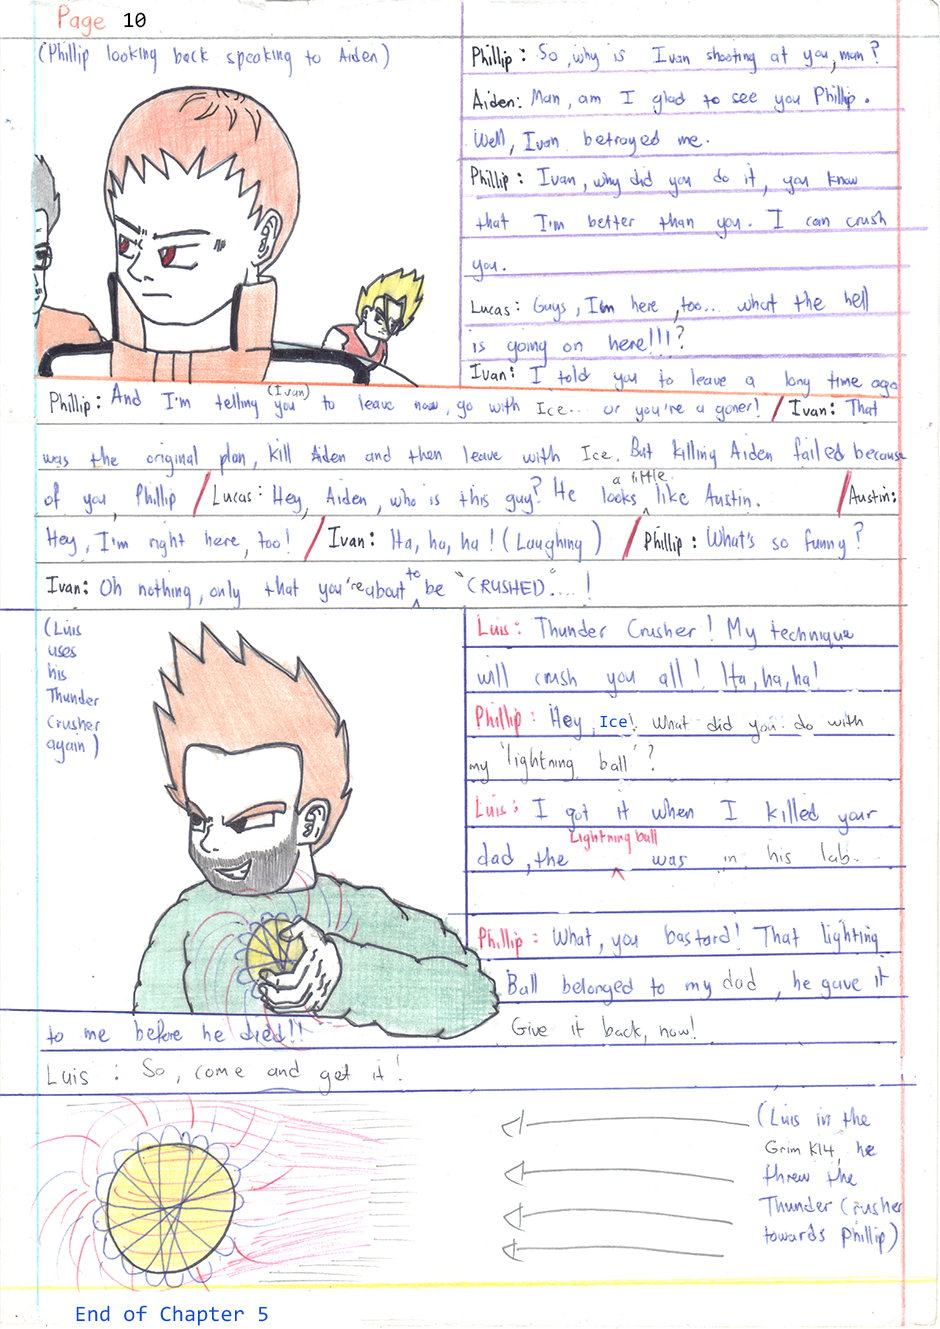 Page 10
(Phillip looking back speaking to Aiden)
Phillip: So, why is Ivan shooting at you, man?
Aiden: Man, am I glad to see you Phillip.
Well, Ivan betrayed me.
Phillip: Ivan, why did you do it, you know
that I'm better than you. I can crush
you.
Lucas: Guys, I'm here, too... what the hell
is going on here!!!?
Ivan: I told you to leave a long time ago
Phillip: And I'm telling you (Ivan) to leave now, go with Ice... or you're a goner! / Ivan: That
was the original plan, kill Aiden and then leave with Ice. But killing Aiden failed because
of you, Phillip / Lucas: Hey, Aiden, who is this guy? He looks a little like Austin. / Austin:
Hey, I'm right here, too! / Ivan: Ha, ha, ha! (Laughing) / Phillip: What's so funny?
Ivan: Oh nothing, only that you're about to be "CRUSHED"....!
(Luis
uses
his
Thunder
Crusher
again)
Luis: Thunder Crusher! My technique
will crush you all! Ha, ha, ha!
Phillip: Hey, Ice! What did you do with
my 'lightning ball'?
Luis: I got it when I killed your
dad, the Lightning ball was in his lab.
Phillip: What, you bastard! That lighting
Ball belonged to my dad, he gave it
to me before he died!! Give it back, now!
Luis: So, come and get it!
(Luis in the
Grim K14, he
threw the
Thunder Crusher
towards Phillip)
End of Chapter 5